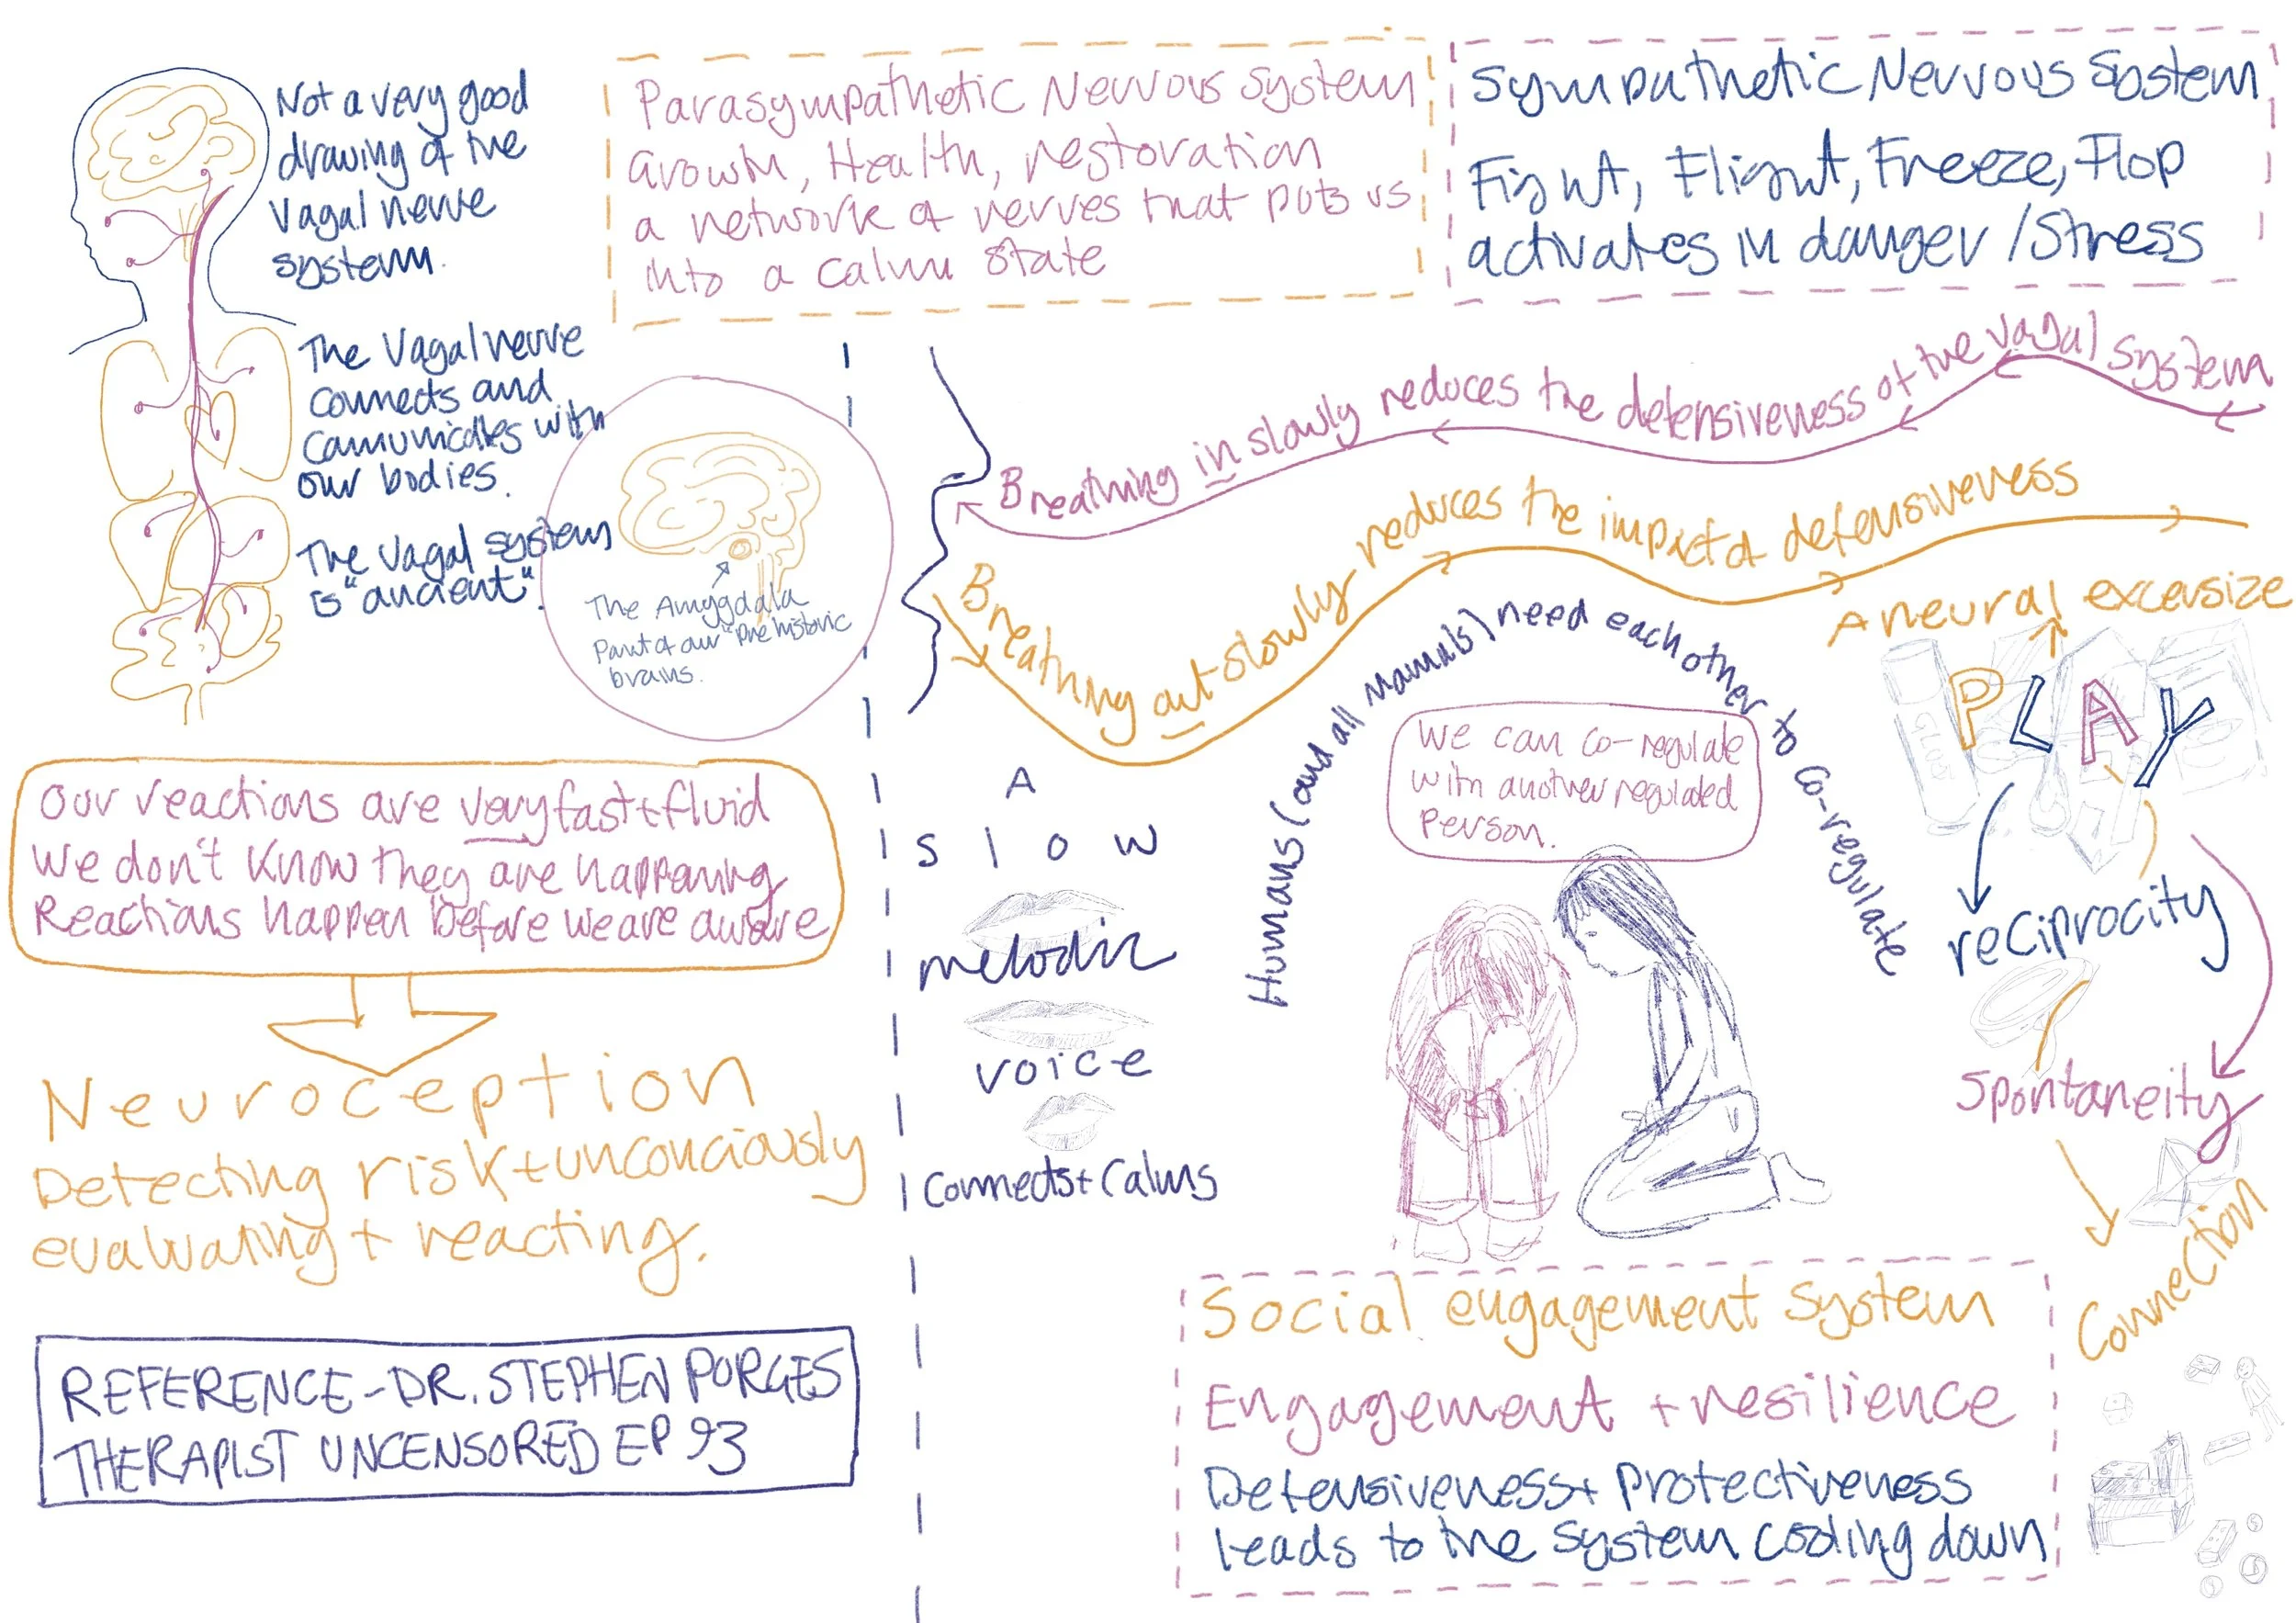 Not a very good
drawing of the
Vagal nerve
system.
The Vagal nerve
connects and
communicates with
our bodies.
The vagal system
is "ancient".
Parasympathetic Nervous System
Growth, Health, restoration
a network of nerves that puts us
into a calm state
Sympathetic Nervous System
Fight, Flight, Freeze, Flop
activates in danger / Stress
The Amygdala
Part of our "prehistoric
brains.
Breathing in slowly reduces the defensiveness of the vagal system
Breathing out slowly reduces the impact of defensiveness
Our reactions are very fast + fluid
We don't know they are happening
Reactions happen before we are aware
Neuroception
Detecting risk + unconciously
evaluating + reacting.
REFERENCE - DR. STEPHEN PORGES
THERAPIST UNCENSORED EP 93
A
slow
melodic
voice
connects + calms
Humans (and all mamals) need each other to co-regulate
We can co-regulate
with another regulated
person.
A neural excersize
GLUE
PLAY
reciprocity
Spontaneity
Connection
Social engagement system
Engagement + resilience
Defensiveness + protectiveness
leads to the system cooling down